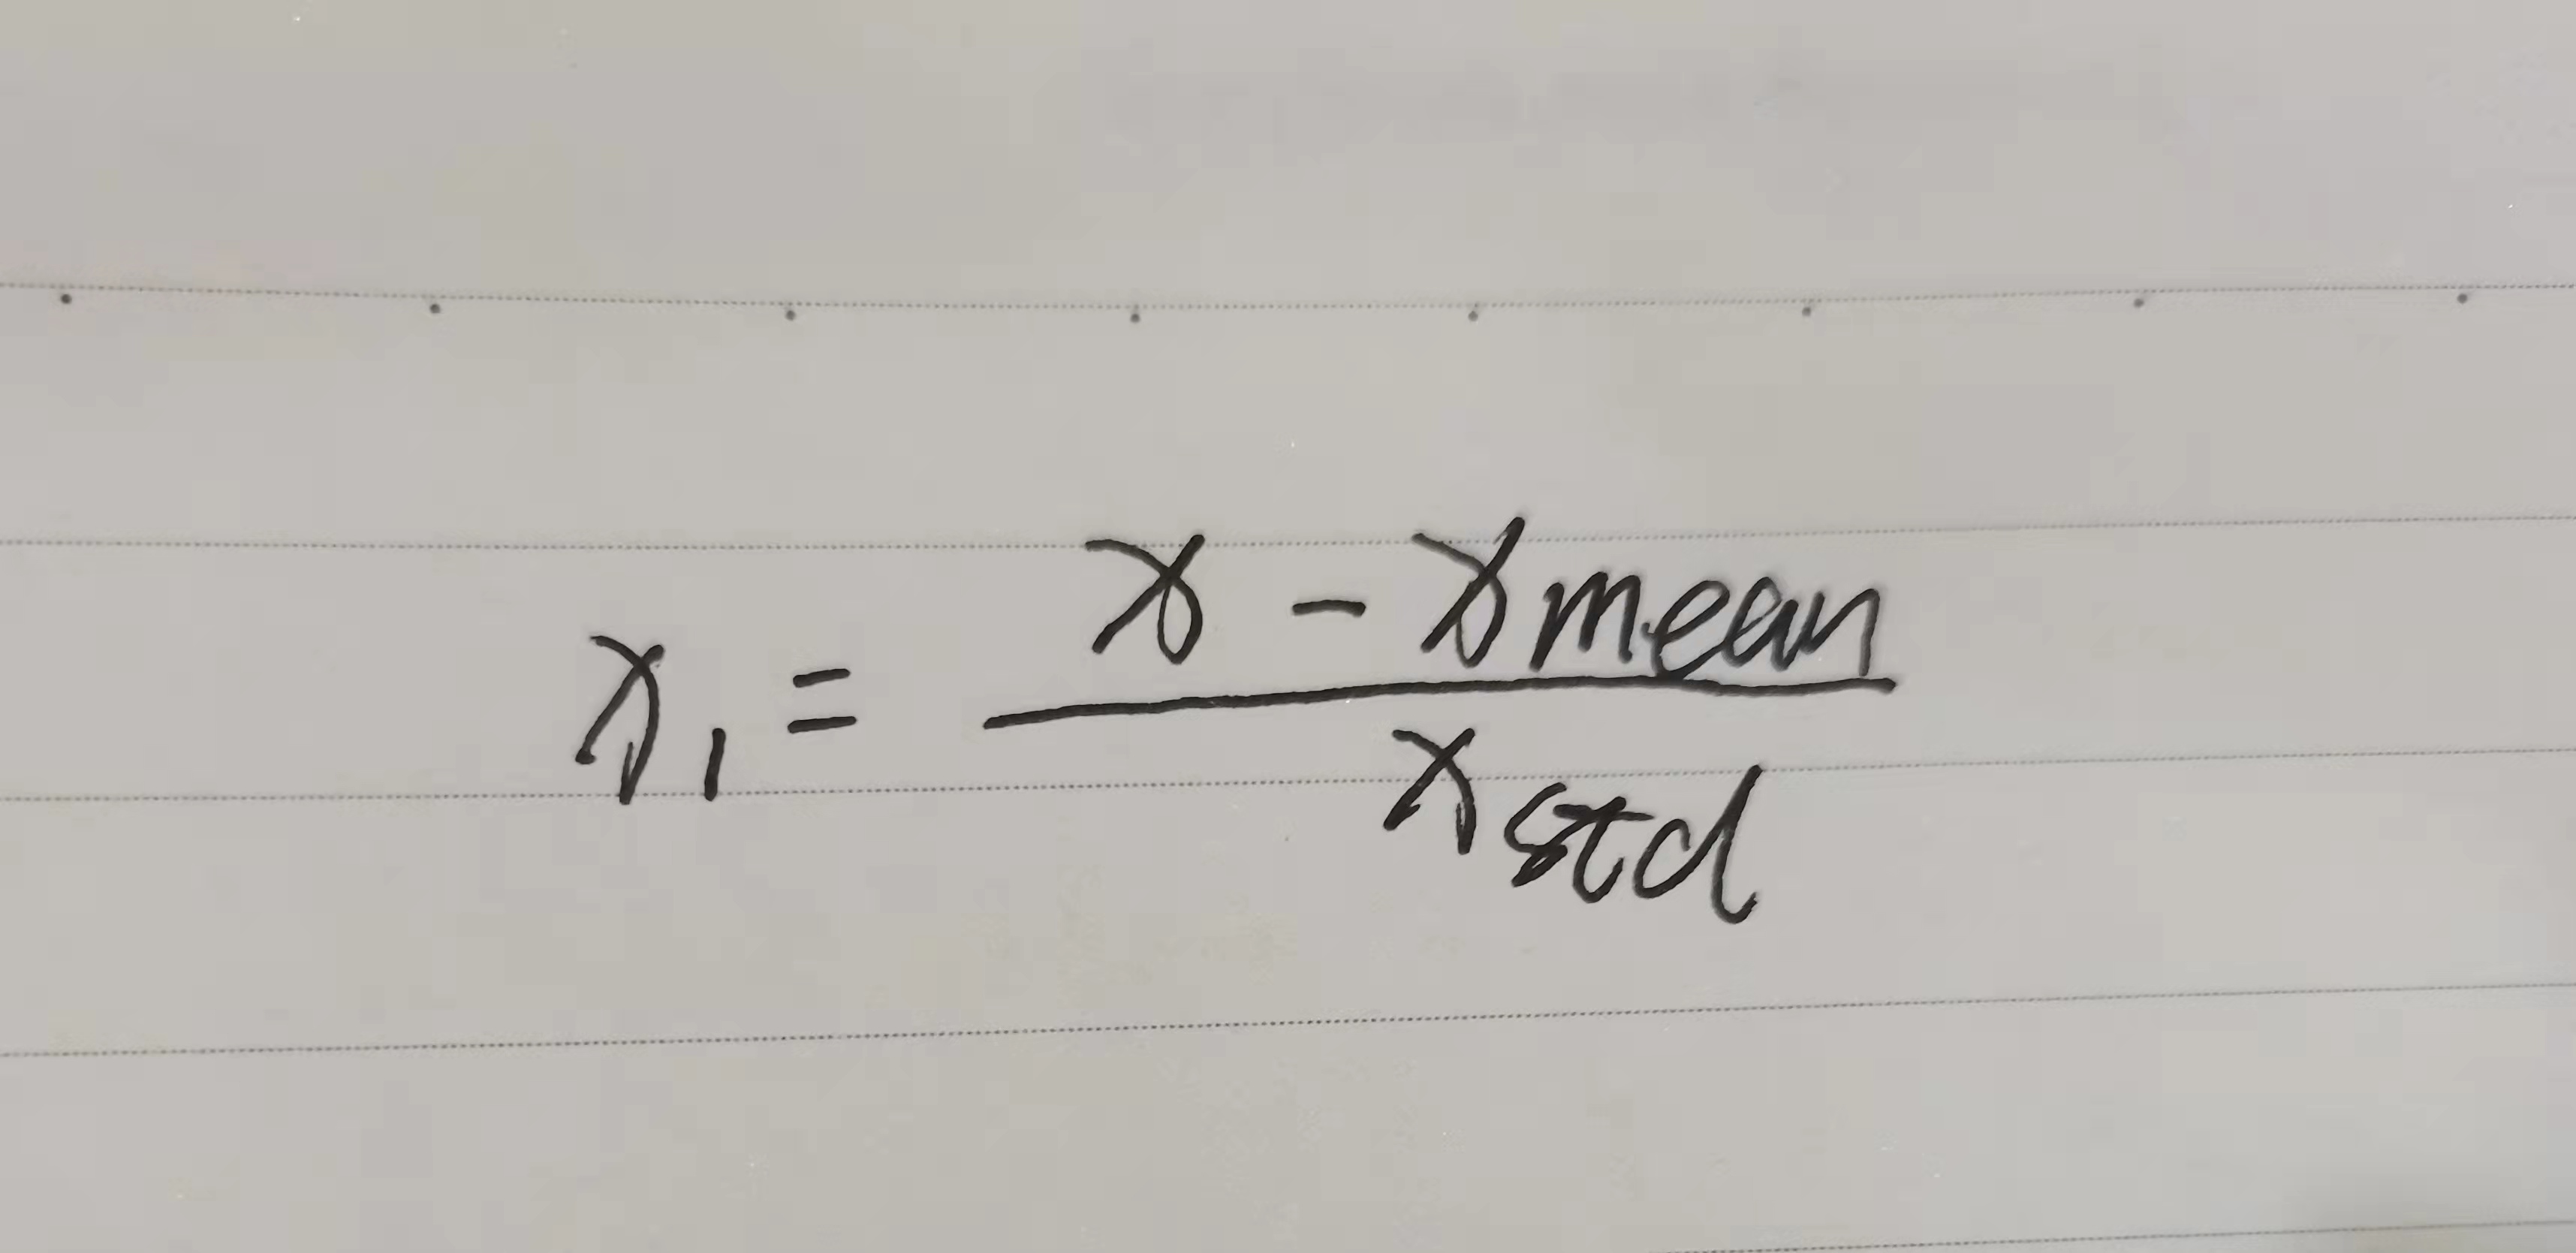 x₁ = (x - xmean) / xstd